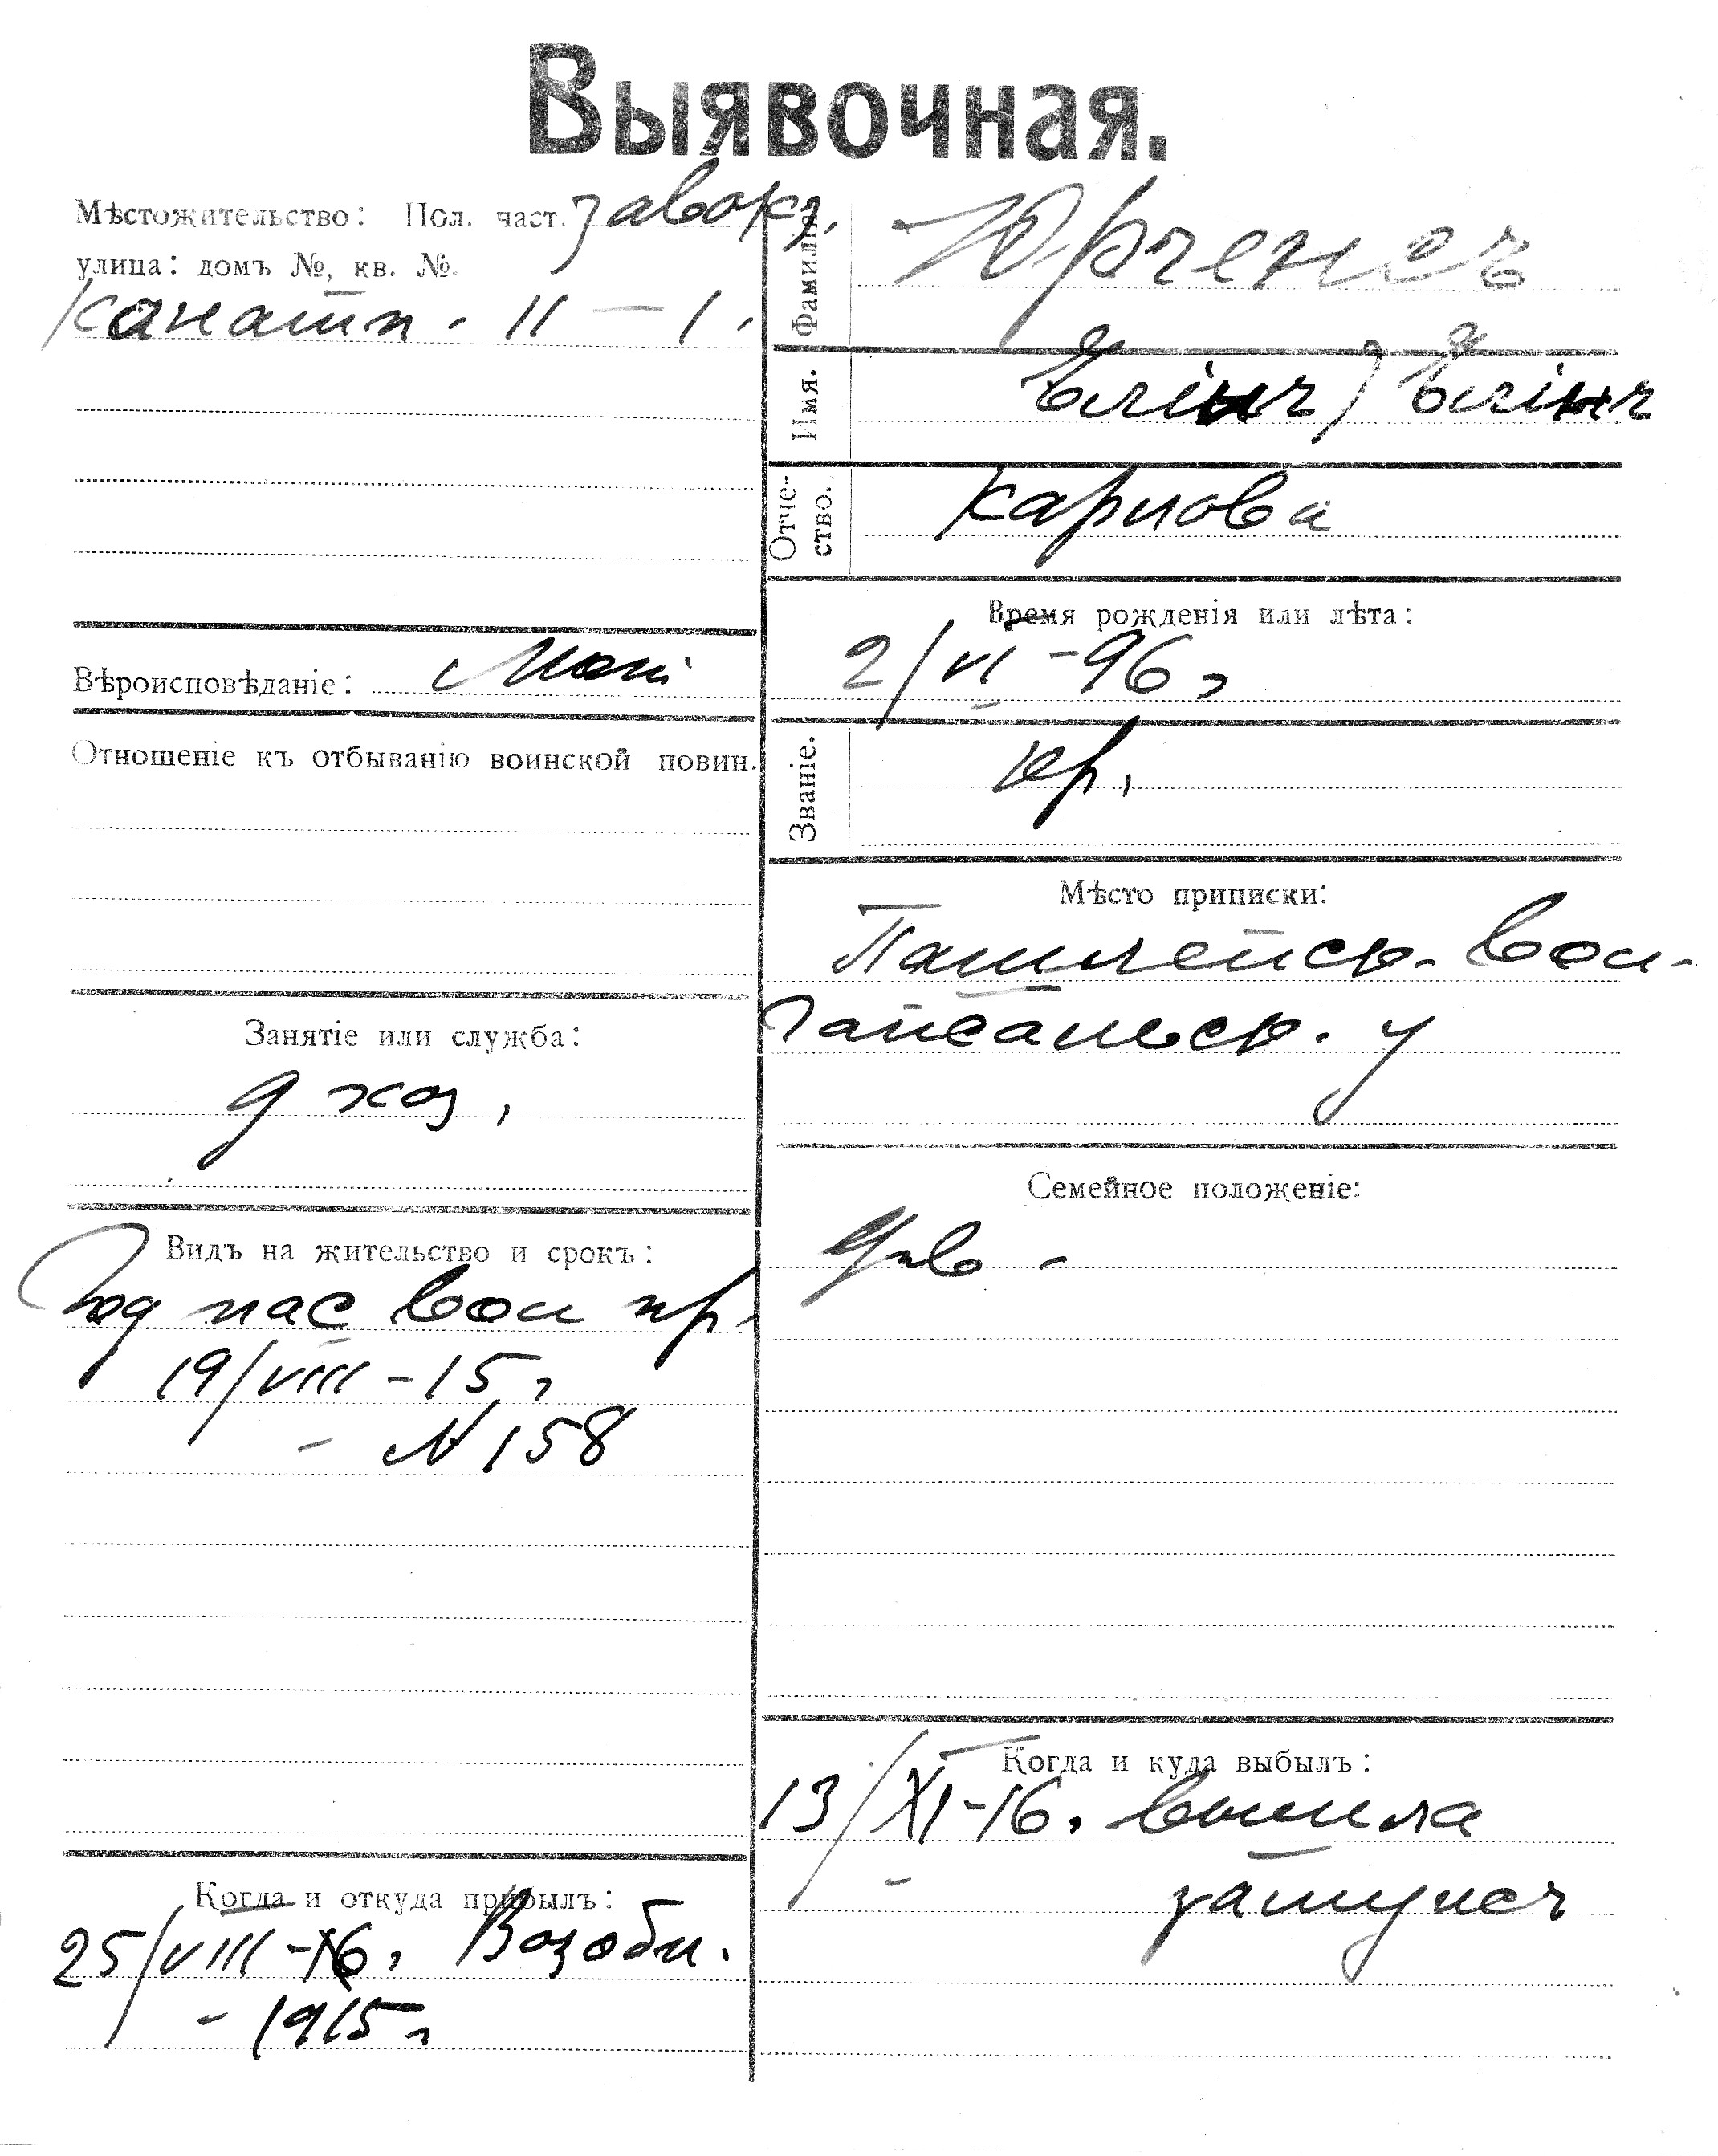 Выявочная.
Мѣстожительство: Пол. част. Завокз.
улица: домъ №, кв. №.
Канатн. 11 – 1.
Вѣроисповѣданіе:
Отношеніе къ отбыванію воинской повин.
Занятіе или служба:
д хоз.
Видъ на жительство и срокъ:
год пас вол пр.
19/VIII – 15 г
N 158
Когда и откуда прибылъ:
25/VIII – 16. Возобн.
1915 г
Фамилія
Юргенсъ
Имя.
Отче-
ство.
Карлова
Время рожденія или лѣта:
2/VI – 96 г
Званіе.
кр.
Мѣсто приписки:
вол.
Гапсальск. у
Семейное положеніе:
Когда и куда выбылъ:
13/XI – 16. вышла
замужъ